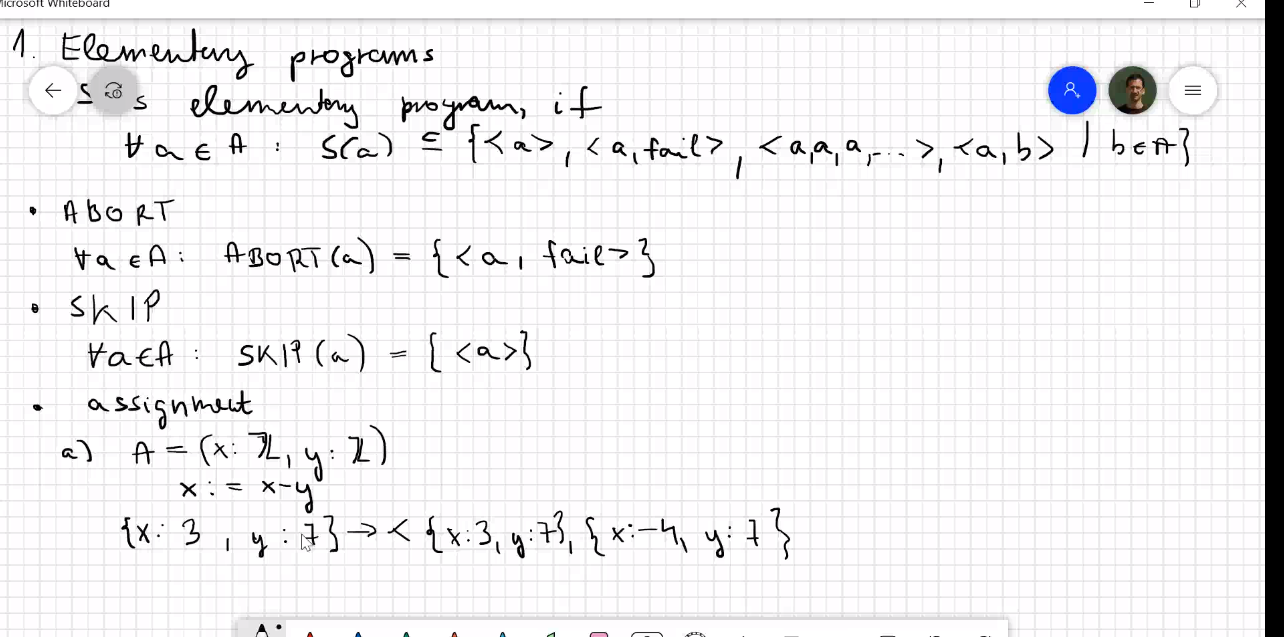 Microsoft Whiteboard
1. Elementary programs
S s elementary program, if
∀a∈A : S(a) ⊆ {<a>, <a,fail>, <a,a,a,...>, <a,b> | b∈A}
• ABORT
∀a∈A: ABORT(a) = {<a, fail>}
• SKIP
∀a∈A : SKIP(a) = {<a>}
• assignment
a) A = (x: ℤ, y: ℤ)
x := x-y
{x: 3 , y : 7} → < {x:3, y:7}, {x:-4, y: 7 }